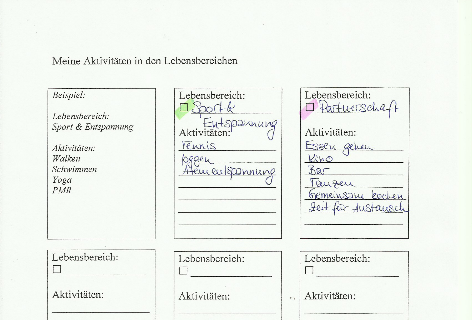 Meine Aktivitäten in den Lebensbereichen
Beispiel:
Lebensbereich:
Sport & Entspannung
Aktivitäten:
Walken
Schwimmen
Yoga
PMR
Lebensbereich:
Sport &
Entspannung
Aktivitäten:
Tennis
joggen
Atementspannung
Lebensbereich:
Partnerschaft
Aktivitäten:
Essen gehen
Kino
Bar
Tanzen
Gemeinsam kochen
Zeit für Austausch
Lebensbereich:
Aktivitäten:
Lebensbereich:
Aktivitäten:
Lebensbereich:
Aktivitäten: